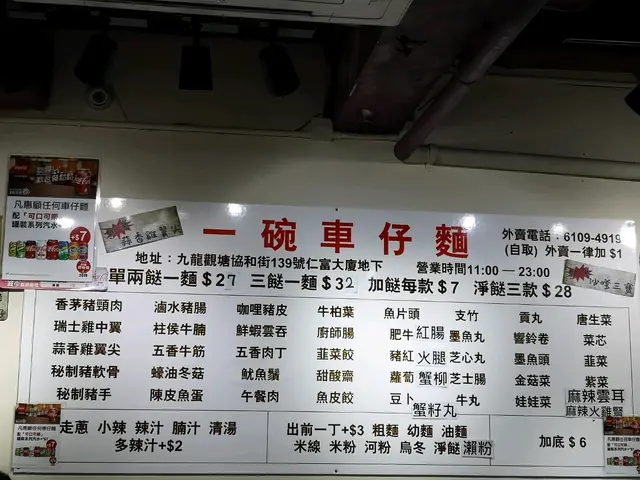 凡惠顧任何車仔麵
配「可口可樂」
罐裝系列汽水
+$7
蒜香雞翼尖
一碗車仔麵
外賣電話：6109-4919
(自取) 外賣一律加 $1
地址：九龍觀塘協和街139號仁富大廈地下
營業時間11:00 — 23:00
單兩餸一麵 $27 三餸一麵 $32 加餸每款 $7 淨餸三款 $28
香茅豬頸肉 滷水豬腸 咖喱豬皮 牛柏葉 魚片頭 支竹 貢丸 唐生菜
瑞士雞中翼 柱侯牛腩 鮮蝦雲吞 廚師腸 肥牛 紅腸 墨魚丸 響鈴卷 菜芯
蒜香雞翼尖 五香牛筋 五香肉丁 韮菜餃 豬紅 火腿 芝心丸 墨魚頭 韮菜
秘制豬軟骨 蠔油冬菇 魷魚鬚 甜酸齋 蘿蔔 蟹柳 芝士腸 金菇菜 紫菜
秘制豬手 陳皮魚蛋 午餐肉 魚皮餃 豆卜 蟹籽丸 牛丸 娃娃菜 麻辣雲耳
麻辣火雞腎
走蔥 小辣 辣汁 腩汁 清湯
多辣汁+$2
出前一丁+$3 粗麵 幼麵 油麵
米線 米粉 河粉 烏冬 淨餸 瀨粉
加底 $6